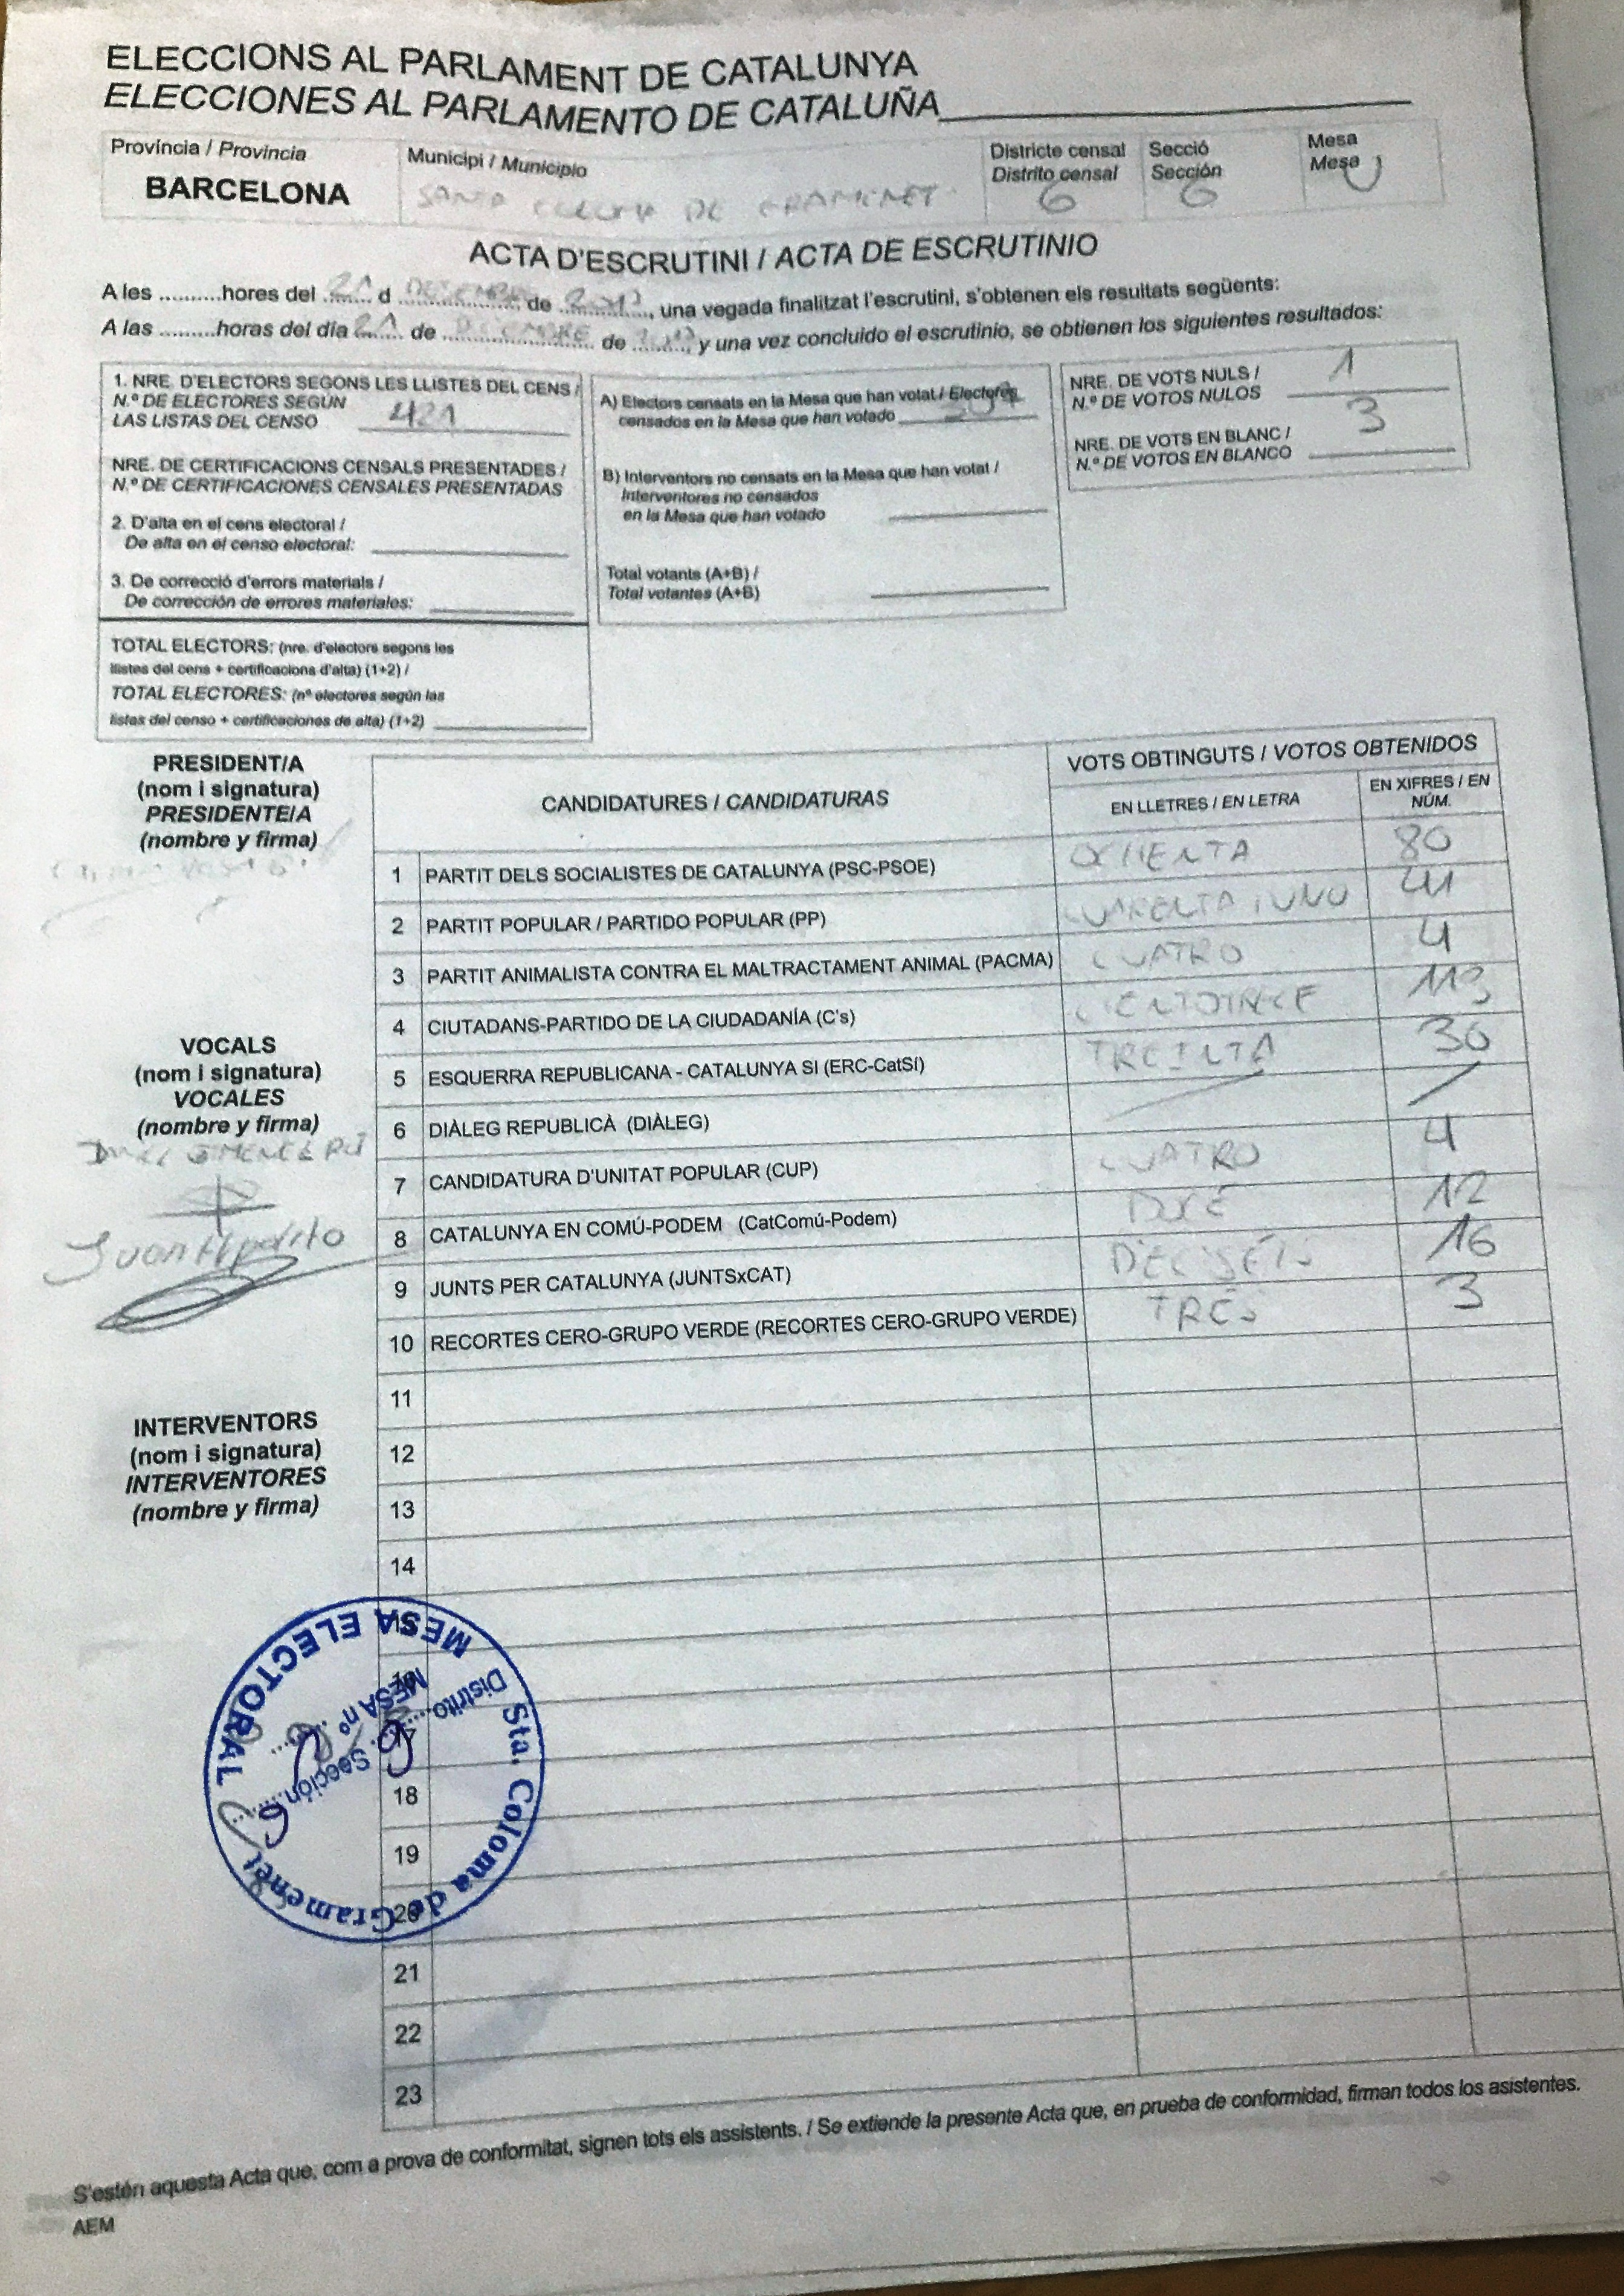 ELECCIONS AL PARLAMENT DE CATALUNYA
ELECCIONES AL PARLAMENTO DE CATALUÑA
Província / Provincia
BARCELONA
Municipi / Municipio
SANTA COLOMA DE GRAMENET
Districte censal
Distrito censal
6
Secció
Sección
6
Mesa
Mesa
U
ACTA D'ESCRUTINI / ACTA DE ESCRUTINIO
A les ..........hores del 21 d DESEMBRE de 2017, una vegada finalitzat l'escrutini, s'obtenen els resultats següents:
A las .........horas del día 21 de DICIEMBRE de 2017, y una vez concluido el escrutinio, se obtienen los siguientes resultados:
1. NRE. D'ELECTORS SEGONS LES LLISTES DEL CENS /
N.º DE ELECTORES SEGÚN
LAS LISTAS DEL CENSO 421
NRE. DE CERTIFICACIONS CENSALS PRESENTADES /
N.º DE CERTIFICACIONES CENSALES PRESENTADAS
2. D'alta en el cens electoral /
De alta en el censo electoral:
3. De correcció d'errors materials /
De corrección de errores materiales:
TOTAL ELECTORS: (nre. d'electors segons les
llistes del cens + certificacions d'alta) (1+2) /
TOTAL ELECTORES: (nº electores según las
listas del censo + certificaciones de alta) (1+2)
A) Electors censats en la Mesa que han votat / Electores
censados en la Mesa que han votado
B) Interventors no censats en la Mesa que han votat /
Interventores no censados
en la Mesa que han votado
Total votants (A+B) /
Total votantes (A+B)
NRE. DE VOTS NULS /
N.º DE VOTOS NULOS 1
NRE. DE VOTS EN BLANC /
N.º DE VOTOS EN BLANCO 3
PRESIDENT/A
(nom i signatura)
PRESIDENTE/A
(nombre y firma)
VOCALS
(nom i signatura)
VOCALES
(nombre y firma)
Juan
INTERVENTORS
(nom i signatura)
INTERVENTORES
(nombre y firma)
CANDIDATURES / CANDIDATURAS
VOTS OBTINGUTS / VOTOS OBTENIDOS
EN LLETRES / EN LETRA
EN XIFRES / EN
NÚM.
1 PARTIT DELS SOCIALISTES DE CATALUNYA (PSC-PSOE) OCHENTA 80
2 PARTIT POPULAR / PARTIDO POPULAR (PP) CUARENTA iUNO 41
3 PARTIT ANIMALISTA CONTRA EL MALTRACTAMENT ANIMAL (PACMA) CUATRO 4
4 CIUTADANS-PARTIDO DE LA CIUDADANÍA (C's) CIENTOTRECE 113
5 ESQUERRA REPUBLICANA - CATALUNYA SI (ERC-CatSí) TREINTA 30
6 DIÀLEG REPUBLICÀ (DIÀLEG)
7 CANDIDATURA D'UNITAT POPULAR (CUP) CUATRO 4
8 CATALUNYA EN COMÚ-PODEM (CatComú-Podem) DOCE 12
9 JUNTS PER CATALUNYA (JUNTSxCAT) DECISEIS 16
10 RECORTES CERO-GRUPO VERDE (RECORTES CERO-GRUPO VERDE) TRES 3
11
12
13
14
18
19
20
21
22
23
MESA ELECTORAL
Sta. Coloma de Gramenet
Distrito 6 Sección 6
MESA nº U
S'estén aquesta Acta que, com a prova de conformitat, signen tots els assistents. / Se extiende la presente Acta que, en prueba de conformidad, firman todos los asistentes.
AEM